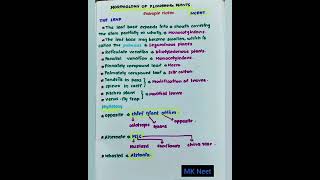 MORPHOLOGY OF FLOWERING PLANTS
Example Notes NCERT
THE LEAF
• The leaf base expands into a sheath covering
the stem partially or wholly → Monocotyledons.
• The leaf base may become swollen, which is
called the pulvinus → Leguminous plants
• Reticulate venation → Dicotyledonous plants.
• Parallel venation → Monocotyledons.
• Pinnately compound leaf → Neem
• Palmately compound leaf → Silk cotton
• Tendrils in peas
• Spines in cacti } → Modification of leaves.
• Pitcher plant
• Venus-fly trap } → Modified leaves
Phyllotaxy
• Opposite →
Calotropis guava opposite
• Alternate →
Mustard Sunflower China rose
• Whorled → Alstonia.
MK Neet